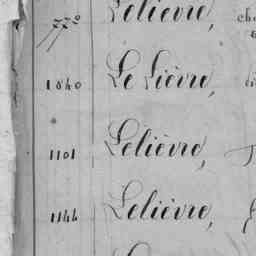 770 Lelièvre, ch
1040 Le Lièvre,
1101 Lelièvre,
1144 Lelièvre,